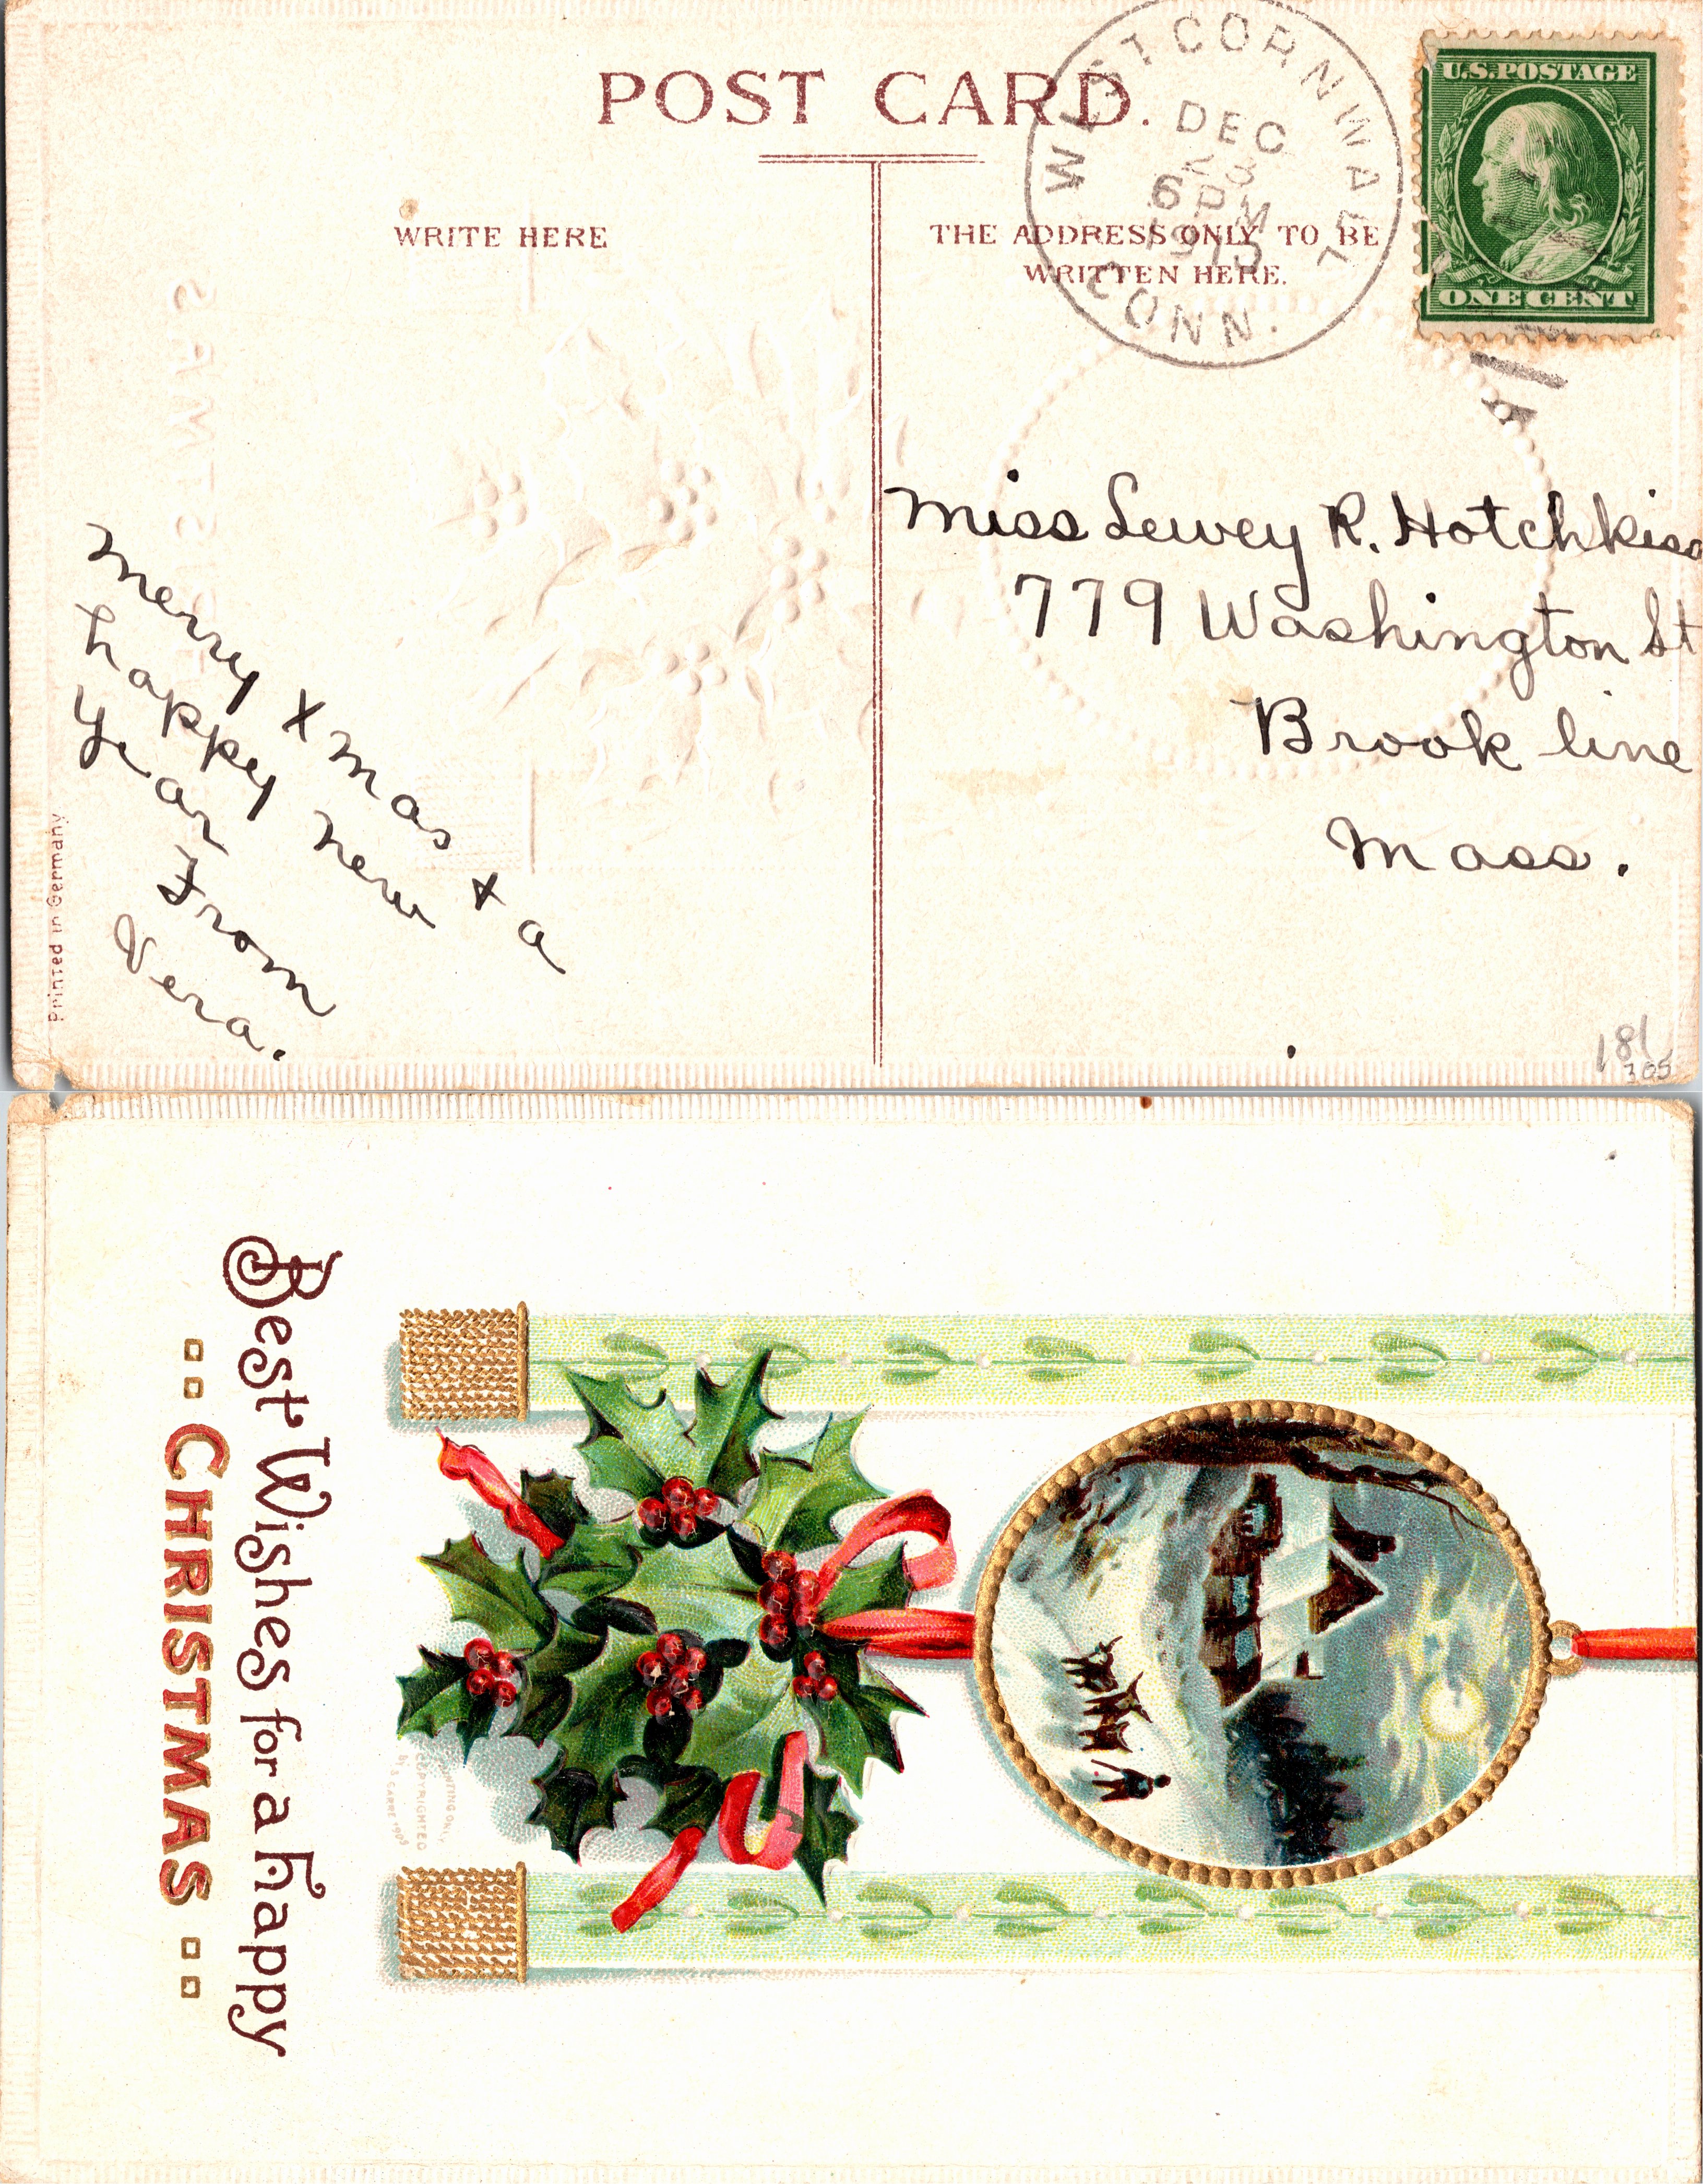 POST CARD.
WEST CORNWALL
DEC
23
6 PM
CONN.
U.S. POSTAGE
ONE CENT
WRITE HERE
THE ADDRESS ONLY TO BE
WRITTEN HERE.
Miss Lewey R. Hotchkiss
779 Washington St
Brook line
Mass.
Merry Xmas + a
happy new
year
From
Vera.
Printed in Germany
181
305
Best Wishes for a Happy
CHRISTMAS
COPYRIGHTED
BY S. GARRE 1909